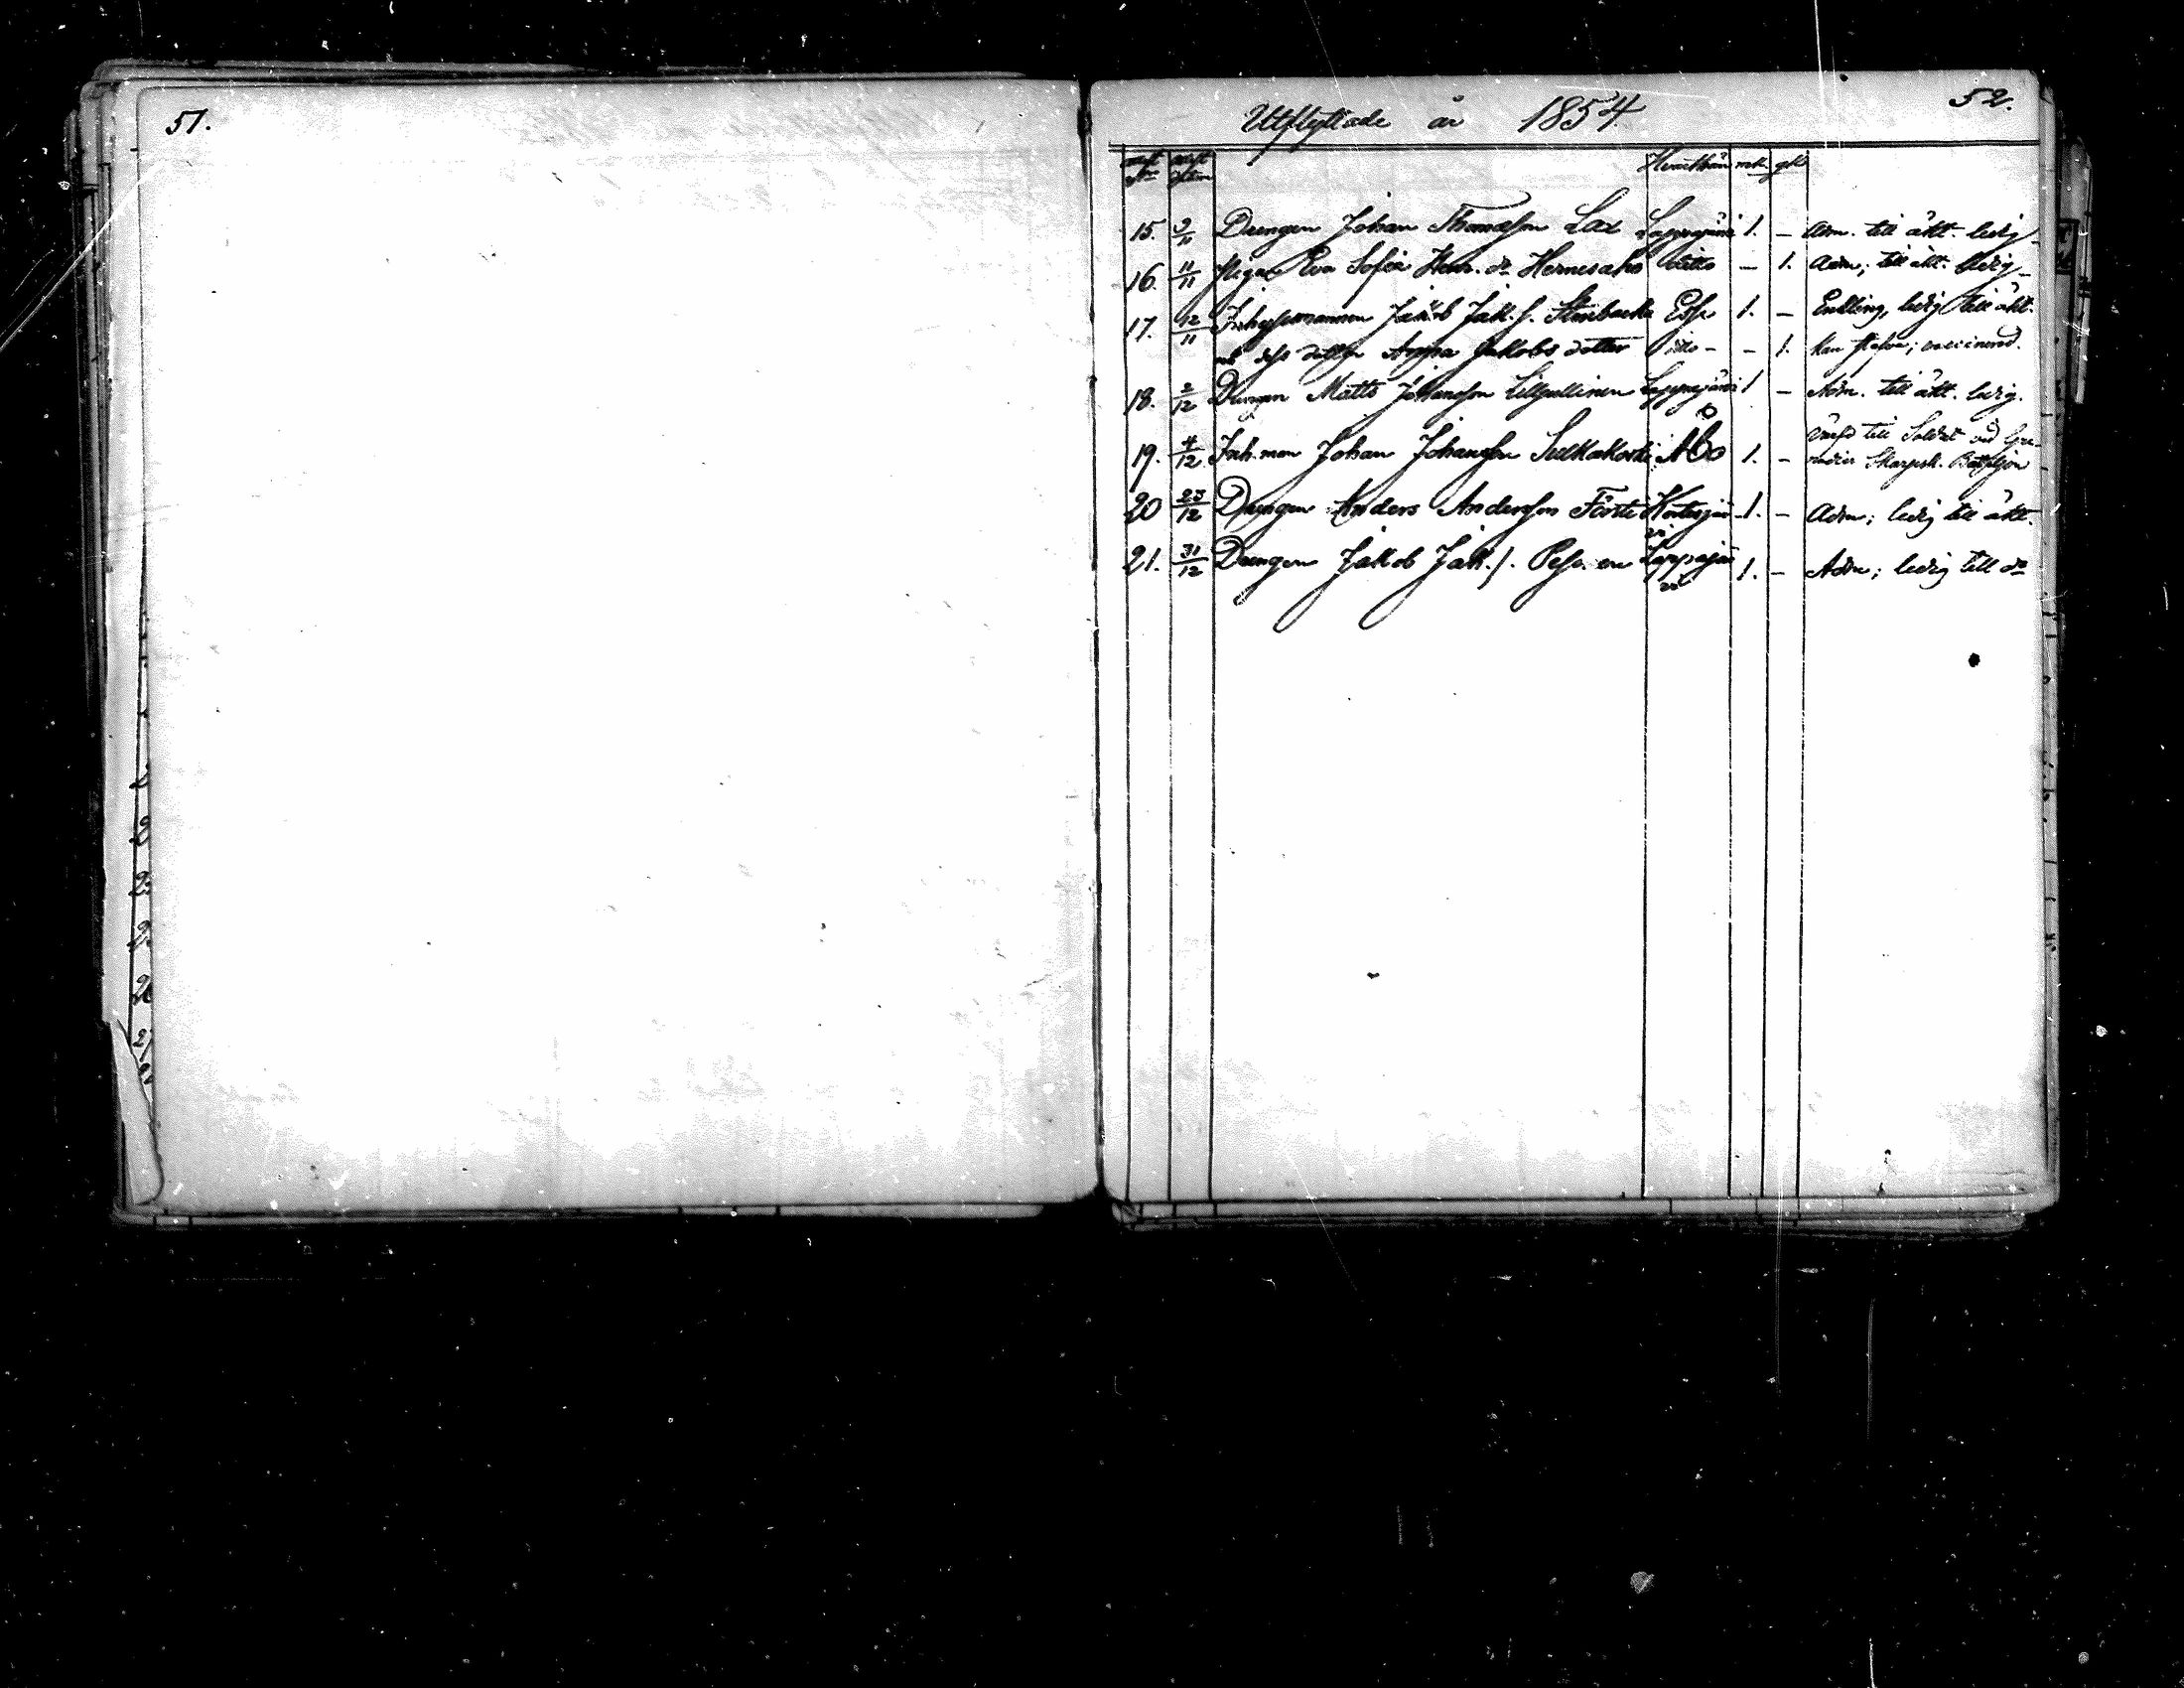 51.
52.
Utflyttade år 1854.
15. 9/11 Drengen Johan Thomasson Lax Lappajärvi 1. – Adm. till äkt. ledig
16. 11/11 Pigan Eva Sofia Henr. dr Hernesaho ditto – 1. Adm; till äkt. ledig
17. 12/11 Inhysesmannen Jakob Jak. s. Stenbacka Esse 1. – Enkling, ledig till äkt.
dess dotter Anna Jakobs dotter ditto – – 1. kan stafva; vaccinerad.
18. 2/12 Drengen Matts Johansson Lillpullinen Lappajärvi 1 – Adm. till äkt. ledig.
19. 4/12 Inh. man Johan Johansson Sulkakoski Åbo 1. – till Soldat vid Gre-
nadier Skarpsk. Bataljon
20 23/12 Drengen Anders Andersson Försti Kortesjär-
vi 1. – Adm; ledig till äkt.
21. 31/12 Drengen Jakob Jak. s. Lappajär-
vi 1. – Adm; ledig till do